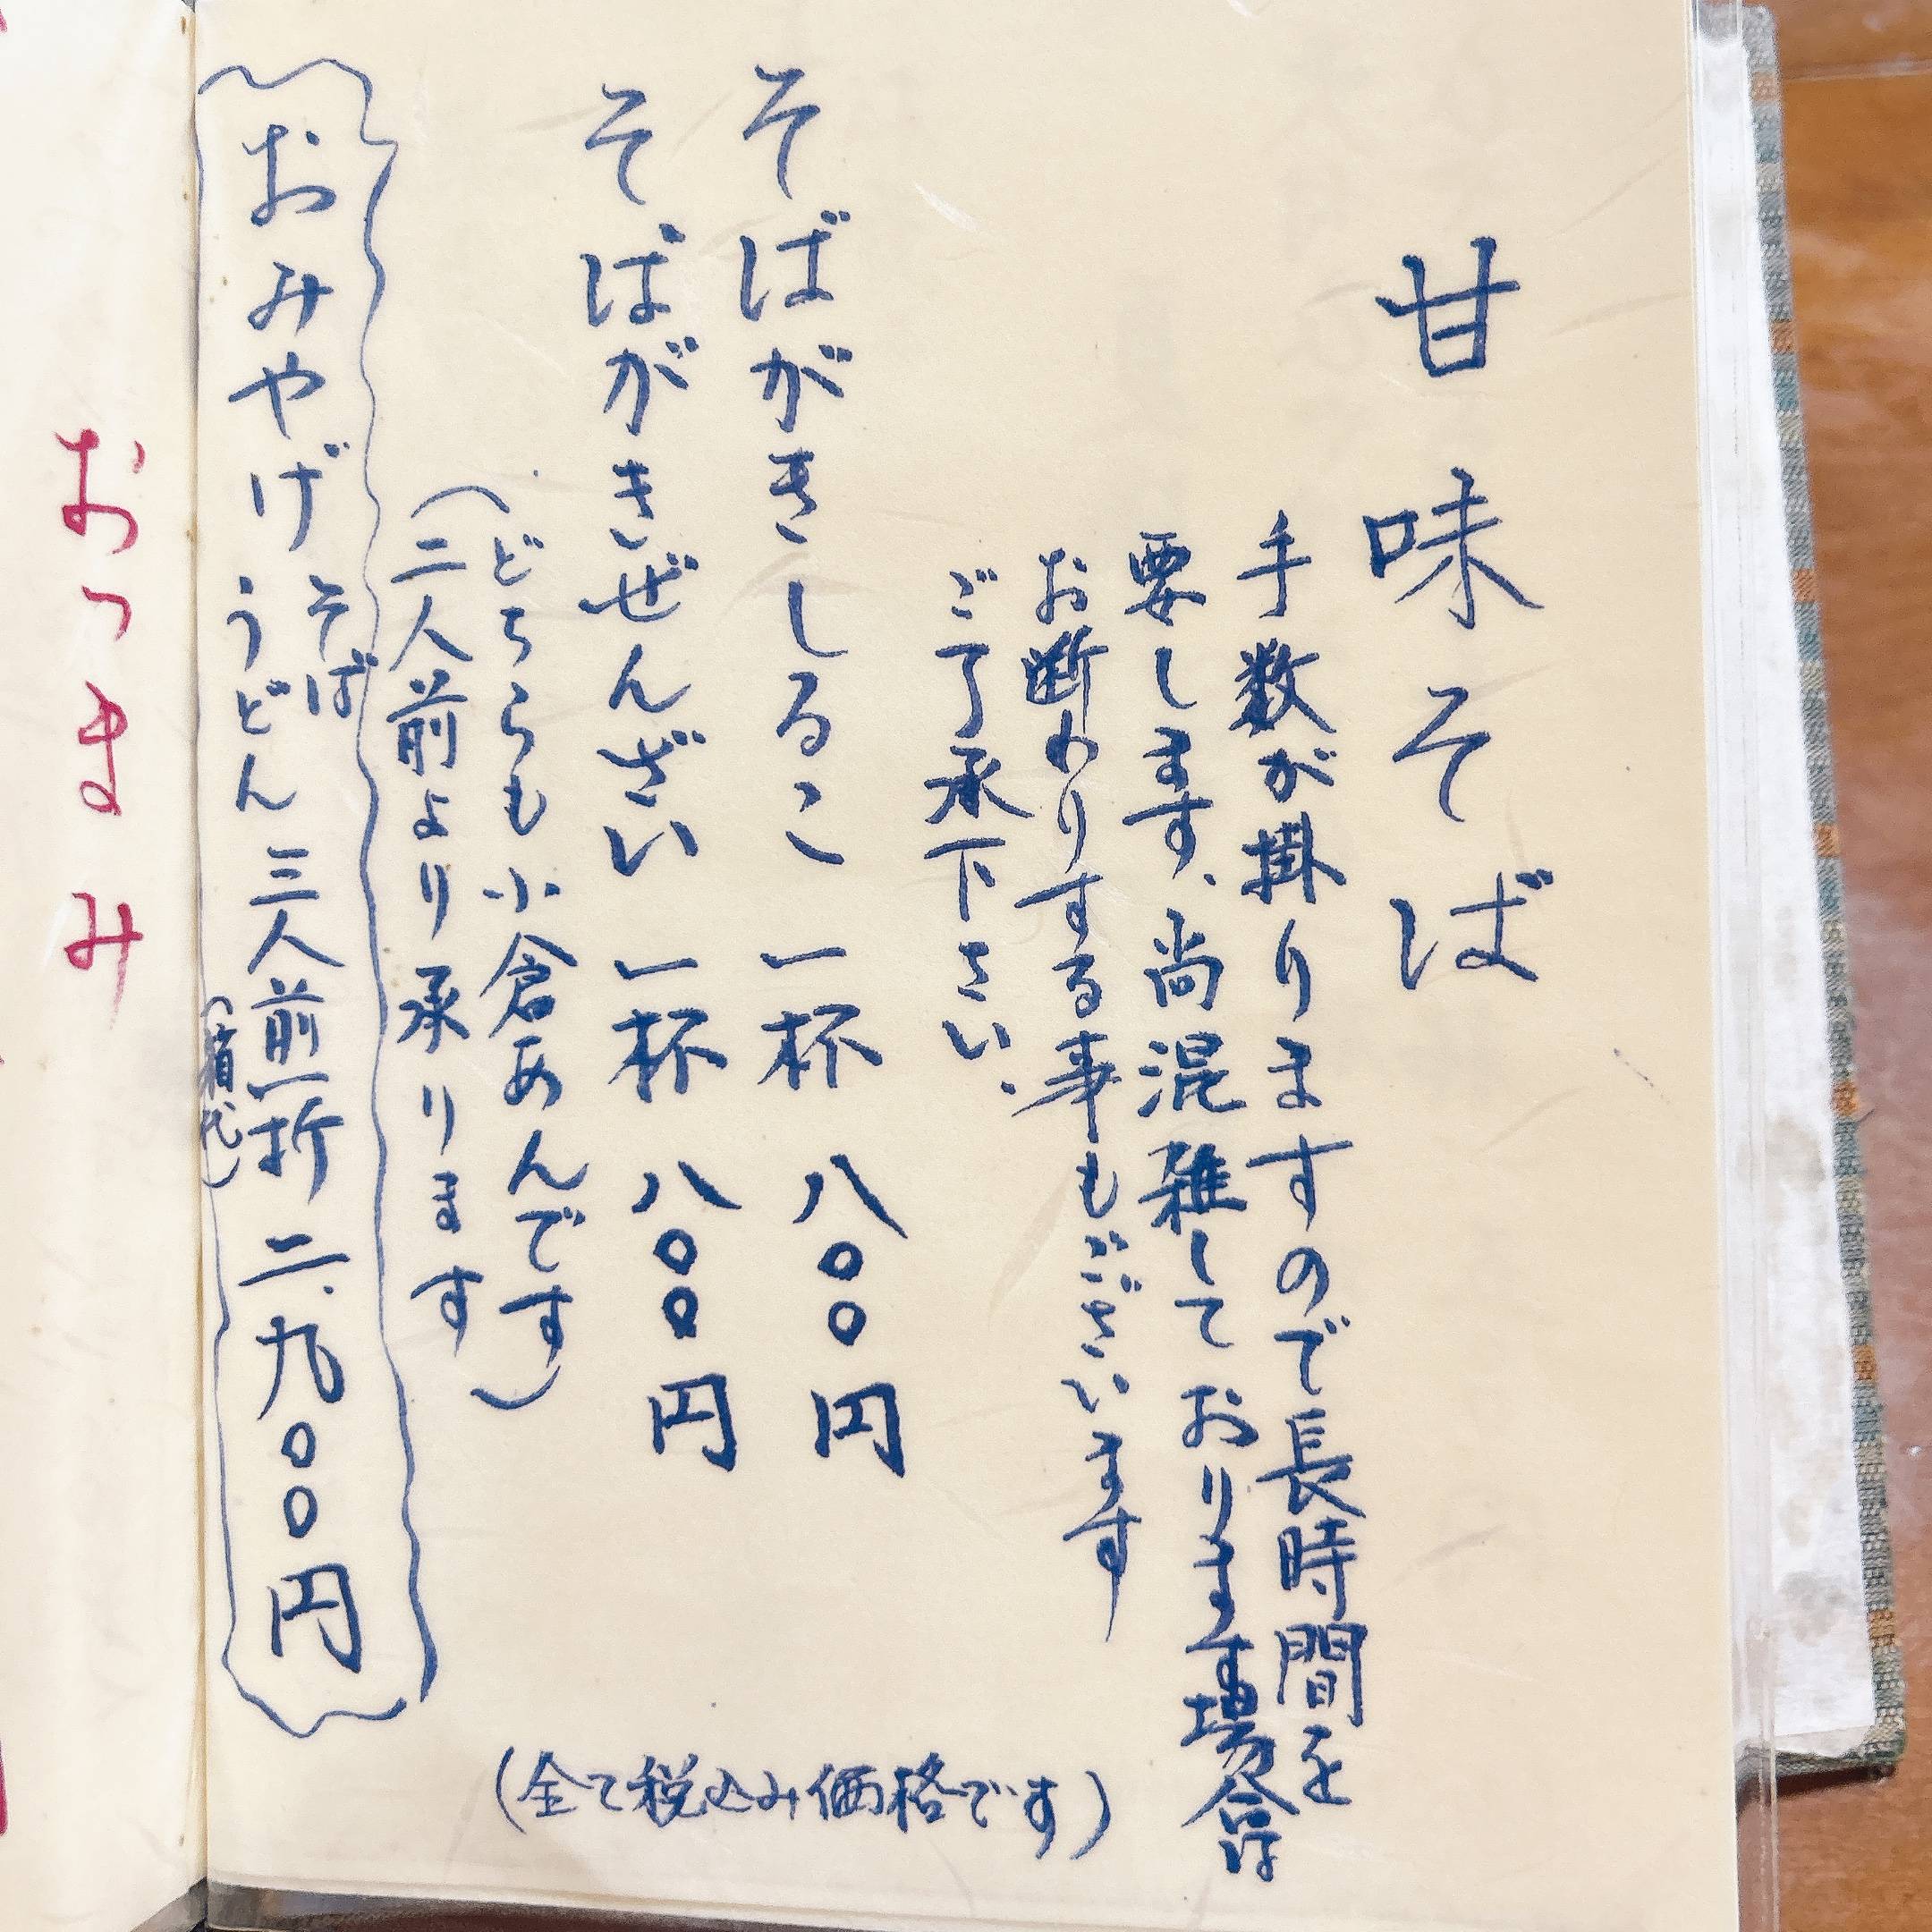 甘味そば
手数が掛りますので長時間を
要します、尚混雑しております場合は
お断わりする事もございます
ご了承下さい、
そばがきしるこ 一杯 八〇〇円
そばがきぜんざい 一杯 八〇〇円
(どちらも小倉あんです
二人前より承ります)
おみやげ そば うどん 三人前一折 二、九〇〇円
(箱代)
(全て税込み価格です)
おつまみ